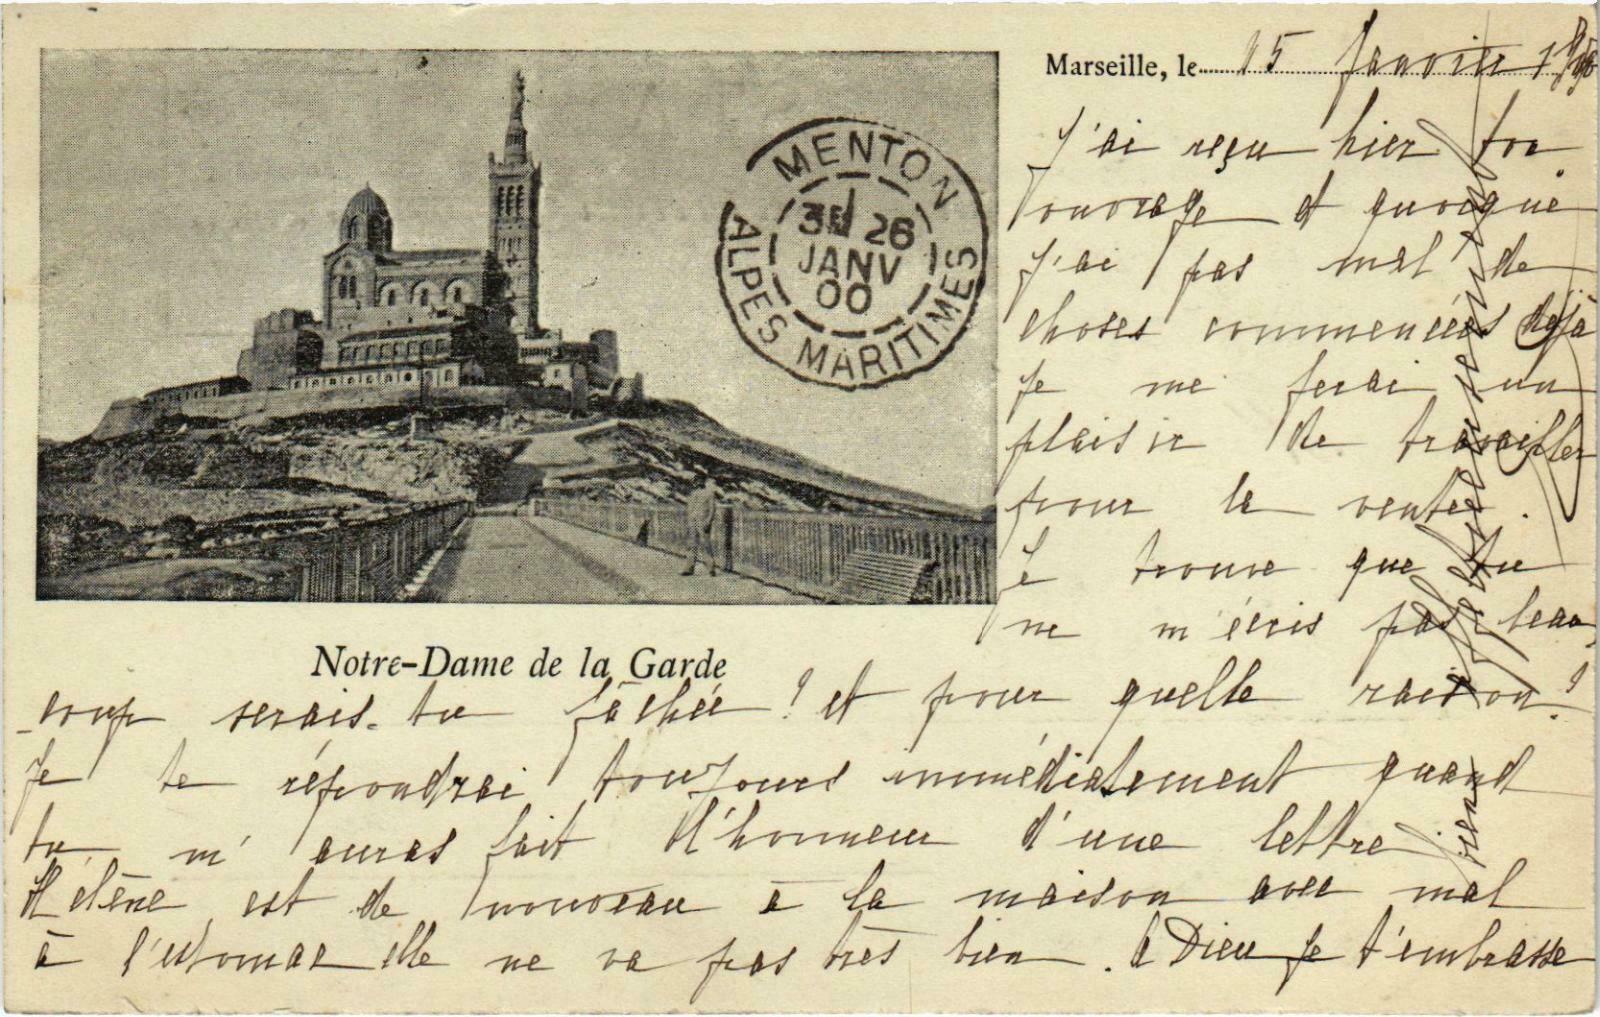 Marseille, le 15 Janvier 1900
J'ai reçu hier ton
ouvrage et quoique
j'ai pas mal de
choses commencées déjà
je me ferai un
plaisir de travailler
pour la vente.
Je trouve que tu
ne m'écris pas beau
MENTON
3E 26
JANV
00
ALPES MARITIMES
Notre-Dame de la Garde
-coup serais-tu fâchée? et pour quelle raison?
Je te répondrai toujours immédiatement quand
tu m'auras fait l'honneur d'une lettre
Hélène est de nouveau à la maison avec mal
à l'estomac elle ne va pas très bien. A Dieu je t'embrasse
bien affectueusement